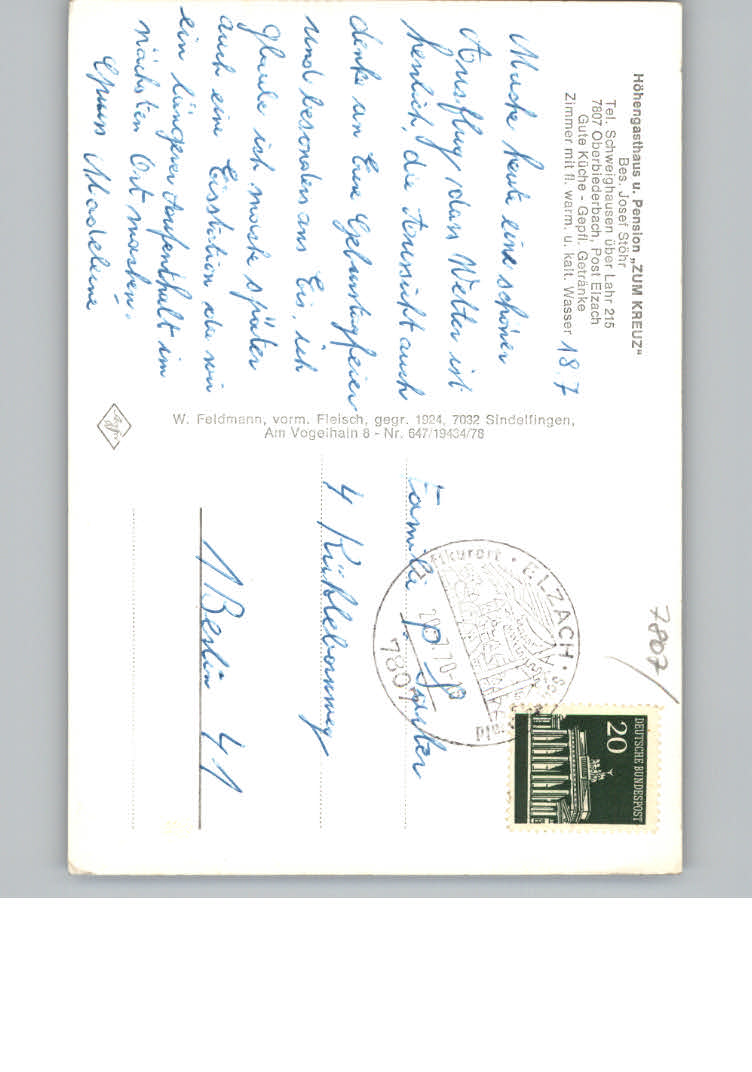 Höhengasthaus u. Pension „ZUM KREUZ"
Bes. Josef Stöhr
Tel. Schweighausen über Lahr 215
7807 Oberbiederbach, Post Elzach
Gute Küche - Gepfl. Getränke
Zimmer mit fl. warm. u. kalt. Wasser
18.7
Mache heute eine schöner
Ausflug, dass Wetter ist
herrlich, die Aussicht auch
denke an Eure Geburtstagfeier
und besonders ans Eis, ich
glaube ich mache später
auch eine Eisstation da wir
ein längeren Aufenthalt im
nächsten Ort machen.
Madeleine
W. Feldmann, vorm. Fleisch, gegr. 1924, 7032 Sindelfingen,
Am Vogelhain 8 - Nr. 647/19434/78
7807
DEUTSCHE BUNDESPOST
20
Luftkurort · ELZACH ·
7.70-18
7807
Familie P
4
1 Berlin 41